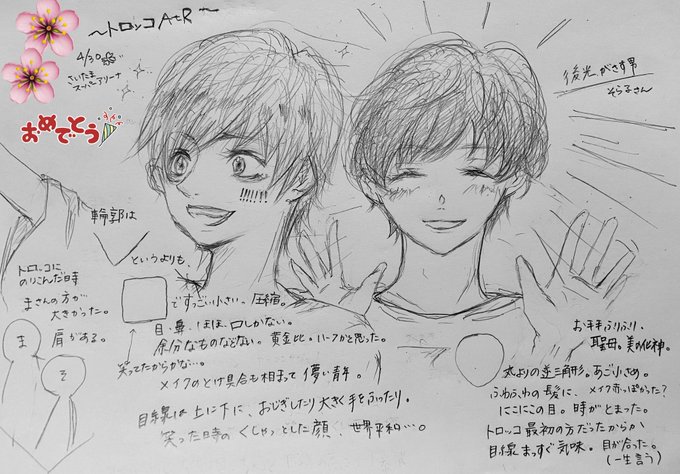 ～トロッコ A to R～
4/30
さいたま
スーパーアリーナ
おめでとう
後光がさす男
そら子さん
輪郭は
というよりも、
ですっごい小さい。圧縮。
目、鼻、ほほ、口しかない。
余分なものなどない。黄金比。ハーフかと思った。
笑ってたからかな…。
メイクのとけ具合も相まって儚い青年。
目線は上に下に、おじぎしたり大きく手をふったり。
笑った時のくしゃっとした顔、世界平和…。
トロッコに
のりこんだ時
まさんの方が
大きかった。
肩がある。
ま
そ
お手手ふりふり、
聖母。美の化神。
丸よりの逆三角形。あご小さめ。
ふわふわの髪に、メイク赤っぽかった？
にこにこの目。時がとまった。
トロッコ最初の方だったからか
目線まっすぐ気味。目が合った。
(一生言う)